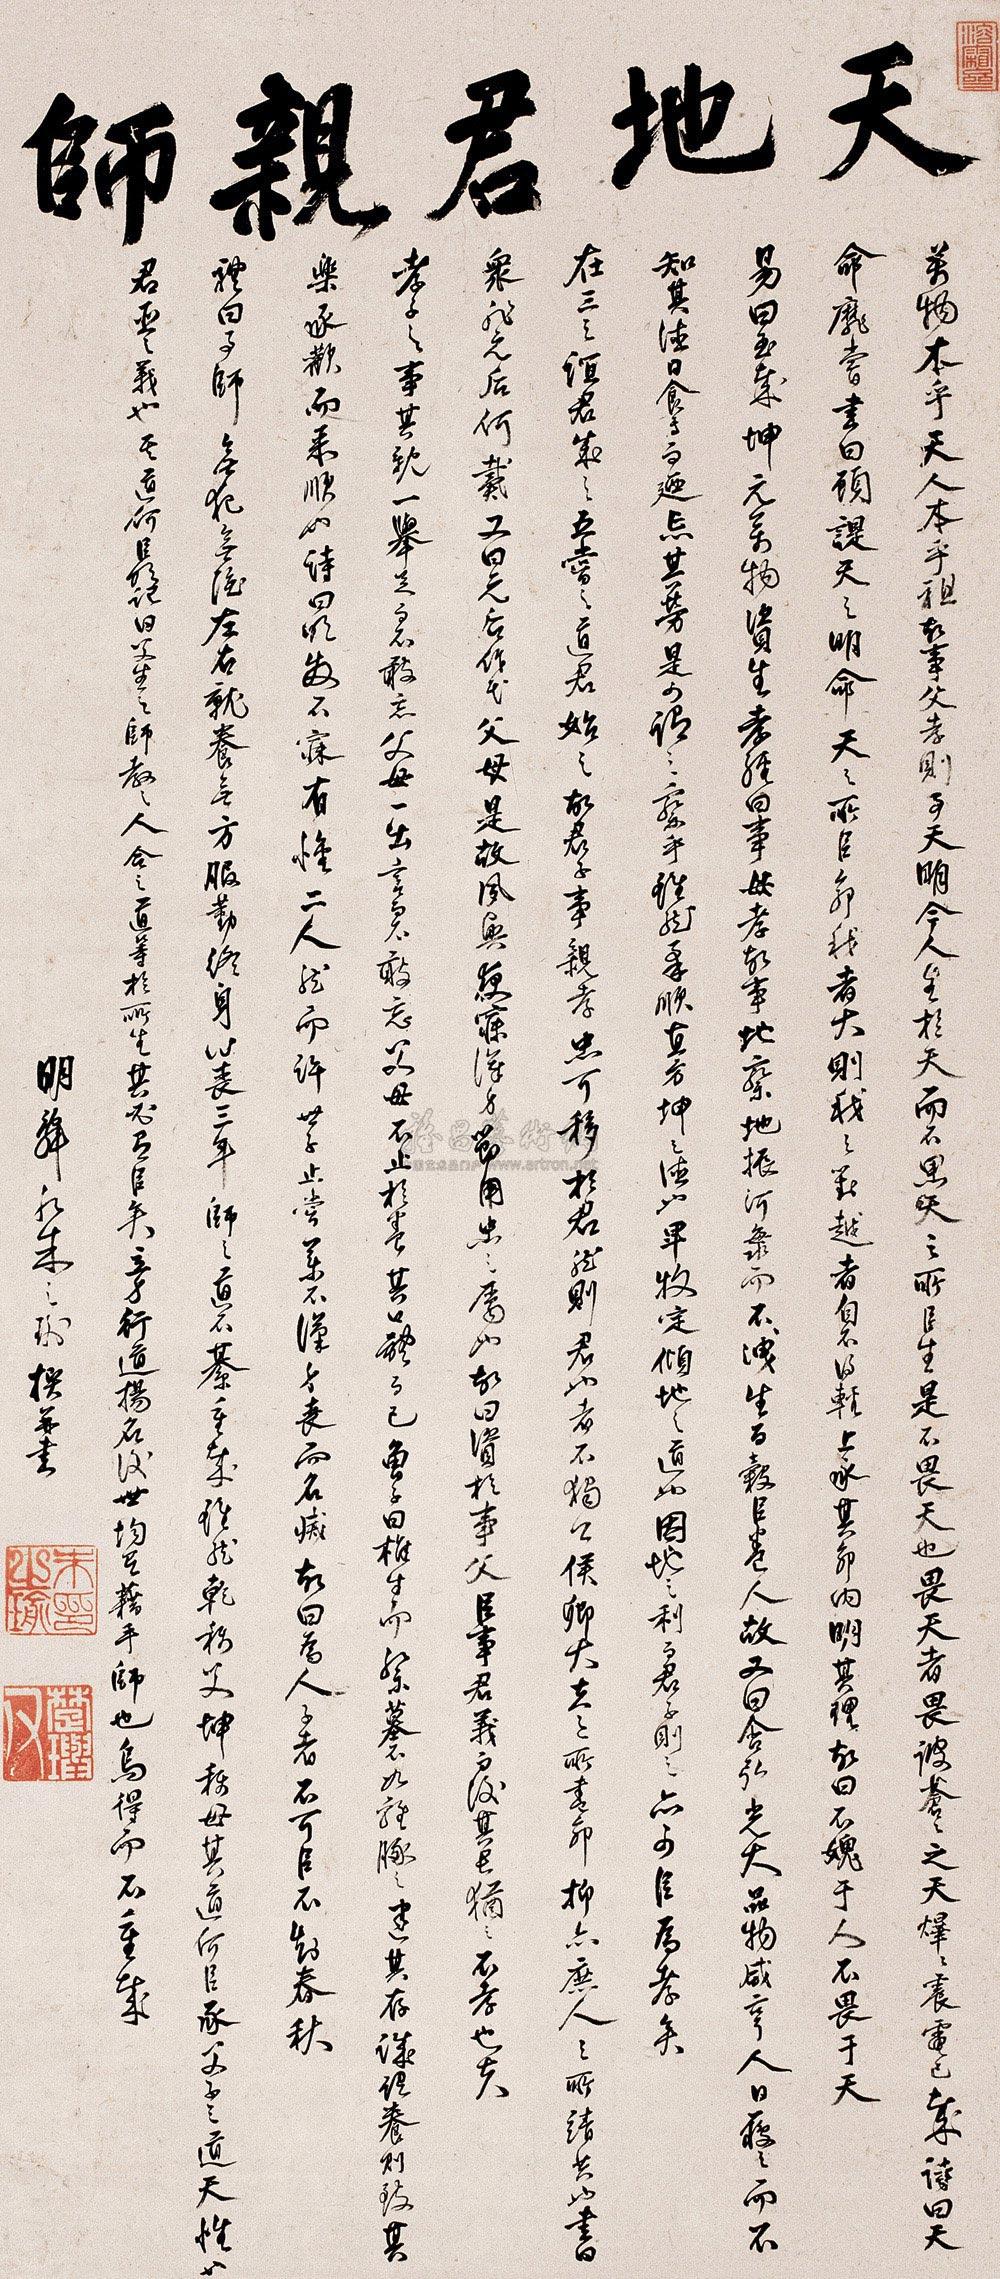 天地君親師
萬物本乎天人本乎祖故事父孝則事天明今人生於天而不思天之所以生是不畏天也畏天者畏彼蒼蒼之天燁燁震電已哉詩曰天
命靡常書曰顧諟天之明命天之所以命我者大則我之對越者自不得輕上承其命內明其理故曰不媿于人不畏于天
易曰至哉坤元萬物資生孝經曰事母孝故事地察地振河海而不洩生百穀以養人故又曰含弘光大品物咸亨人日履之而不
知其德日食之而忘其勞是可謂之察乎雖然柔順直方坤之德也卑牧定傾地之道也因地之利君子則之亦可以為孝矣
在三之誼君成之五常之道君始之故君子事親孝忠可移於君然則君也者不獨公侯卿大夫之所委命抑亦庶人之所請共也書曰
眾非元后何戴又曰元后作民父母是故夙興夜寐謹身節用忠之屬也故曰資於事父以事君義而後其君猶之不孝也夫
孝子之事其親一舉足不敢忘父母一出言不敢忘父母不止於養其口體而已曾子曰椎牛而祭墓不如雞豚之逮其存誠謂養則致其
樂承歡而柔順也詩曰明發不寐有懷二人然而許世子止嘗藥不謹身喪而名滅故曰為人子者不可以不知春秋
禮曰事師無犯無隱左右就養無方服勤終身心喪三年師之道不綦重哉雖然乾稱父坤稱母其道何以承父子之道天性也
君臣之義也其道何以明記曰父生之師教之人合之道等於所生其必有以矣立身行道揚名後世均有藉乎師也烏得而不重哉
明舜水朱之瑜撰并書
朱之瑜印
楚璵父